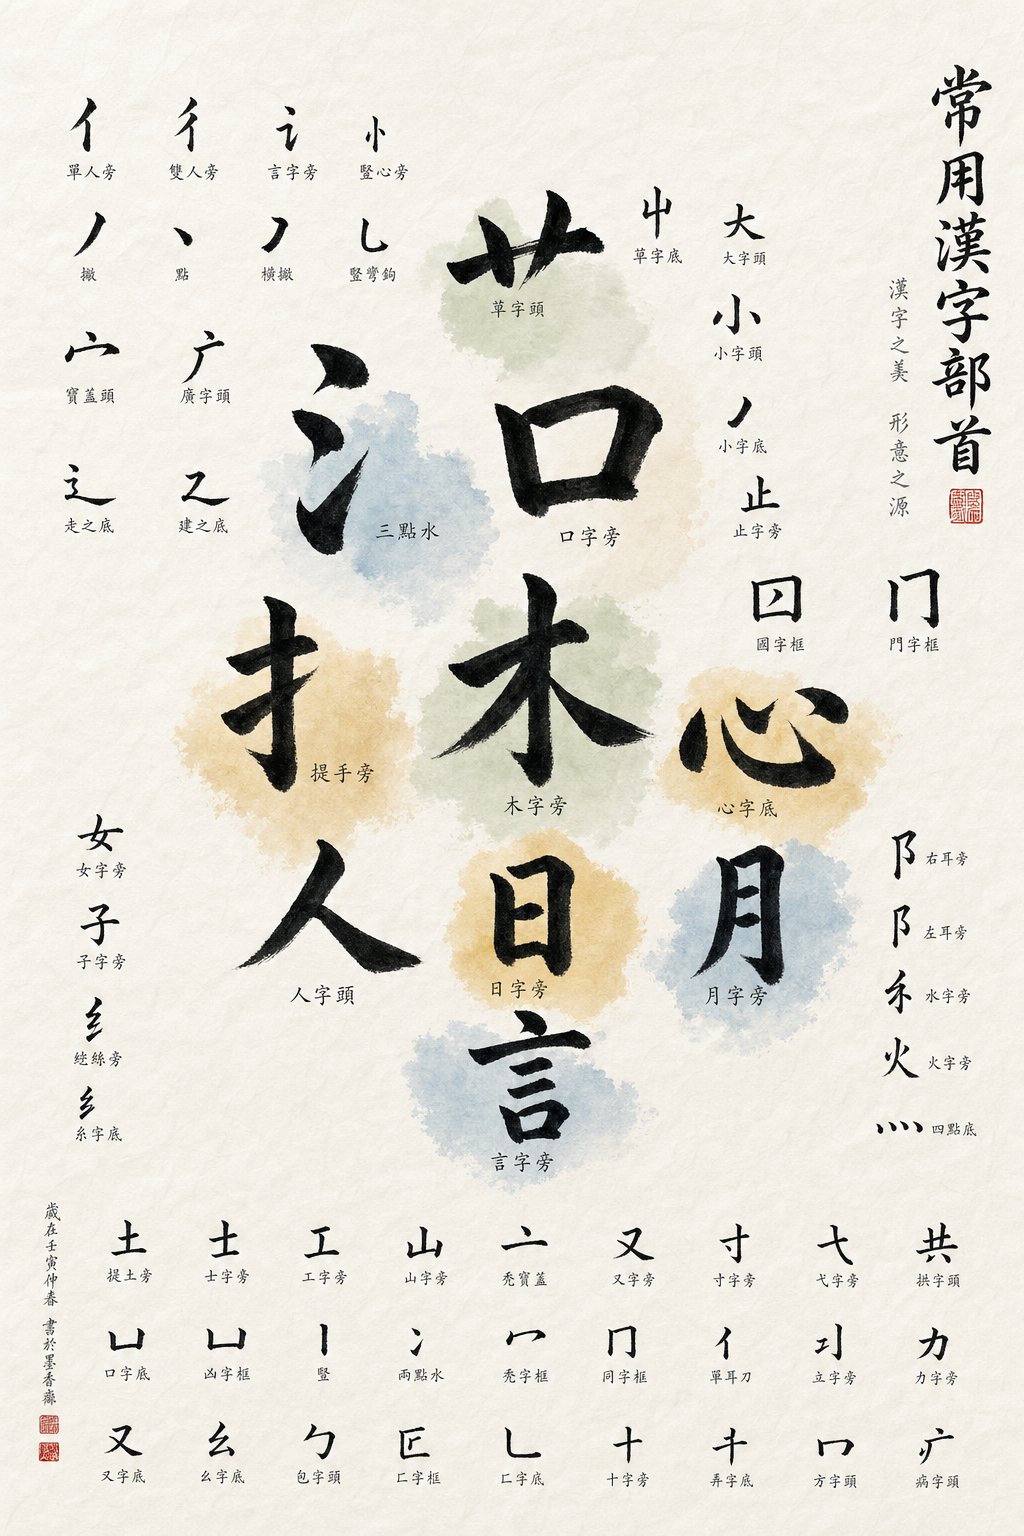 常用漢字部首
漢字之美 形意之源
亻 彳 讠 忄
單人旁 雙人旁 言字旁 豎心旁
丿 丶 ㇇ 乚
撇 點 橫撇 豎彎鈎
宀 广
寶蓋頭 廣字頭
辶 廴
走之底 建之底
艹
草字頭
屮 大
草字底 大字頭
小
小字頭
丿
小字底
止
止字旁
氵
三點水
口
口字旁
囗 门
國字框 門字框
扌
提手旁
木
木字旁
心
心字底
女
女字旁
子
子字旁
纟
絲旁
糹
糸字底
人
人字頭
日
日字旁
月
月字旁
言
言字旁
阝 右耳旁
阝 左耳旁
水字旁
火 火字旁
灬 四點底
土 士 工 山 亠 又 寸 弋 共
提土旁 士字旁 工字旁 山字旁 禿寶蓋 又字旁 寸字旁 弋字旁 拱字頭
凵 凵 丨 冫 冖 冂 亻 力
口字底 凶字框 豎 兩點水 禿字框 同字框 單耳刀 立字旁 力字旁
又 幺 勹 匚 乚 十 冖 疒
又字底 幺字底 包字頭 匚字框 匚字底 十字旁 弄字底 方字頭 病字頭
歲在壬寅仲春 書於墨香